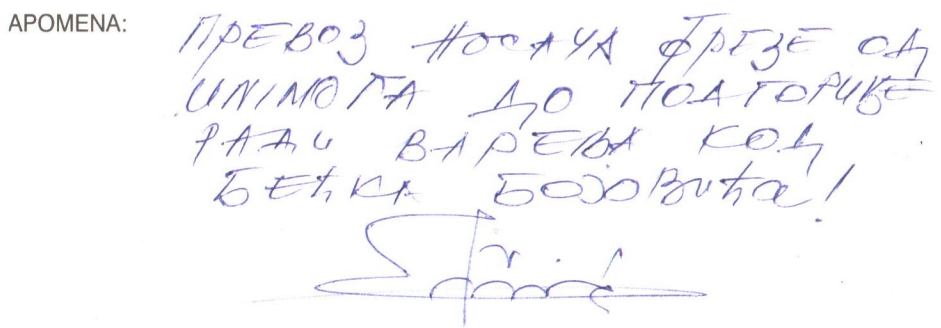 APOMENA:
ПРЕВОЗ НОСАЧА ФРЕЗЕ ОД
UNIMOГА ДО ПОДГОРИЦЕ
РАДИ ВАРЕЊА КОД
БЕЋКА БОЈОВИЋА!